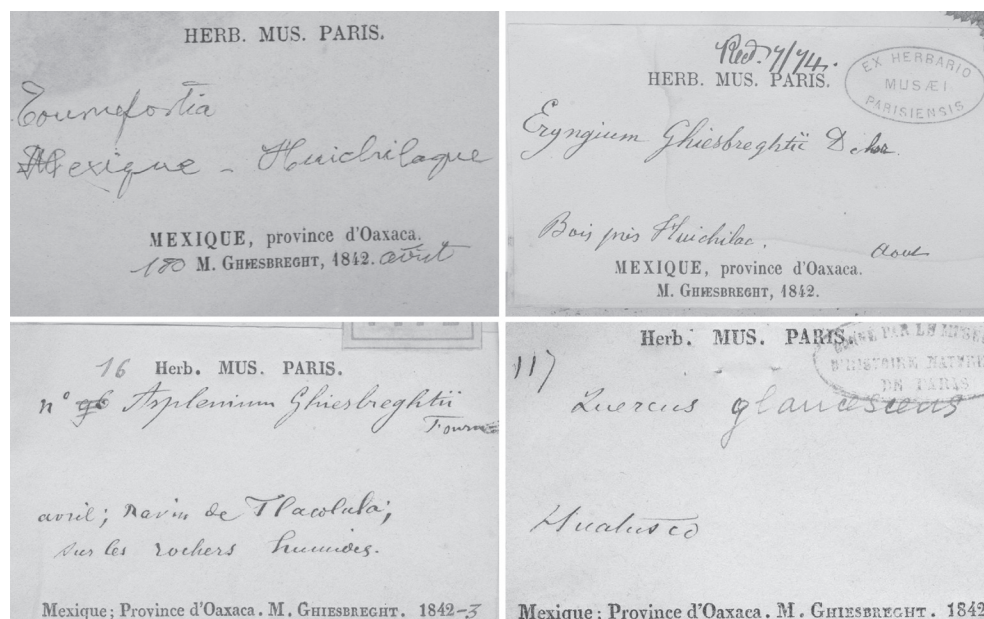 HERB. MUS. PARIS.
Tournefortia
Mexique - Huichilaque
MEXIQUE, province d'Oaxaca.
180 M. GHIESBREGHT, 1842. avril
Red. 7/74.
HERB. MUS. PARIS.
EX HERBARIO
MUSÆI
PARISIENSIS
Eryngium Ghiesbreghtii Dchsr.
Bois près Huichilac.
Aout
MEXIQUE, province d'Oaxaca.
M. GHIESBREGHT, 1842.
16 Herb. MUS. PARIS.
n° 96 Asplenium Ghiesbreghtii
Fourn
avril; Ravin de Tlacolula;
sur les rochers humides.
Mexique; Province d'Oaxaca. M. GHIESBREGHT. 1842-3
Herb. MUS. PARIS.
PAR LE MUSÉ
D'HISTOIRE NATUR
DE PARIS
117
Quercus glaucescens
Huatusco
Mexique; Province d'Oaxaca. M. GHIESBREGHT. 1842